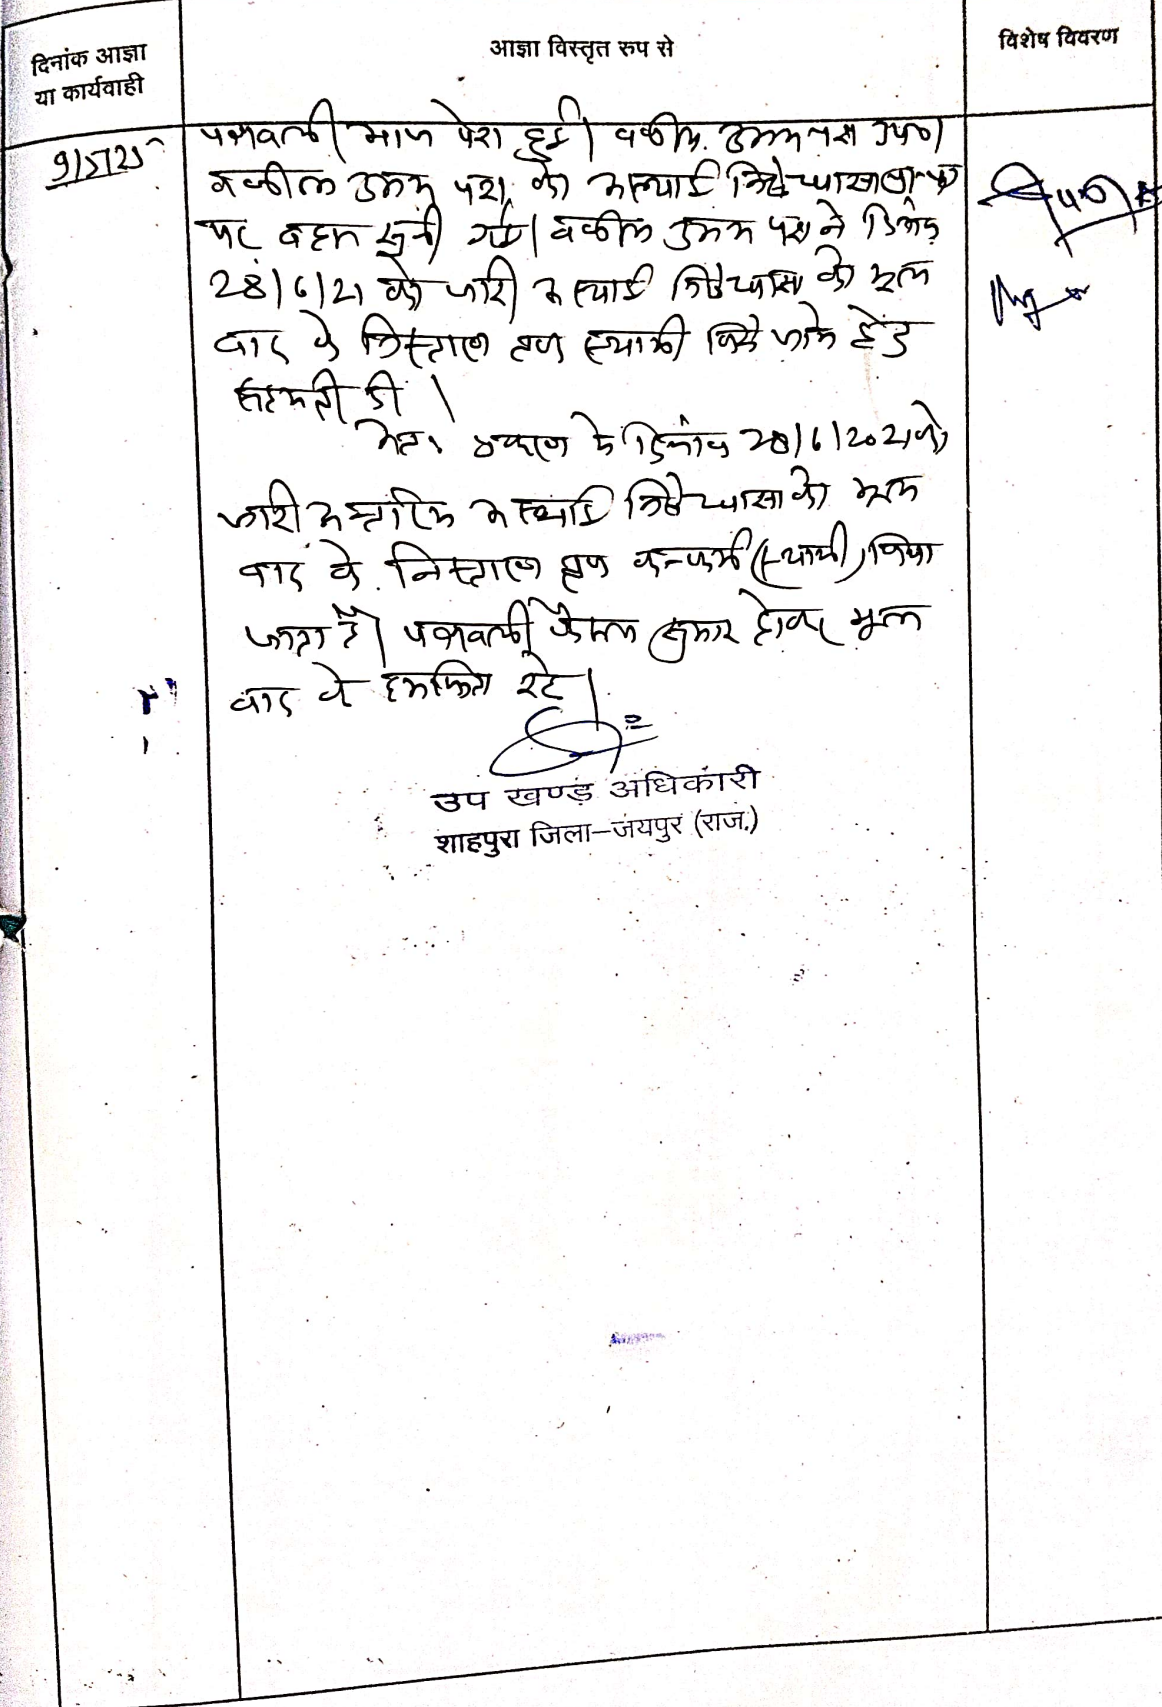 दिनांक आज्ञा
या कार्यवाही
आज्ञा विस्तृत रुप से
विशेष विवरण
9/5/25
पत्रावली आज पेश हुई। वकील उभय पक्ष उप0।
वकील उभय पक्ष की अस्थाई निषेधाज्ञा प्रा0 पत्र
पर बहस सुनी गई। वकील उभय पक्ष ने दिनांक
28/6/21 को जारी अस्थाई निषेधाज्ञा को मूल
वाद के निस्तारण तक स्थायी किये जाने हेतु
सहमती दी।
अतः प्रकरण में दिनांक 28/6/2021 को
जारी अन्तरिम अस्थाई निषेधाज्ञा को मूल
वाद के निस्तारण तक कन्फर्म (स्थायी) किया
जाता है। पत्रावली फैसल शुमार होकर मूल
वाद के हमफिता रहे।
उप खण्ड़ अधिकारी
शाहपुरा जिला–जयपुर (राज.)